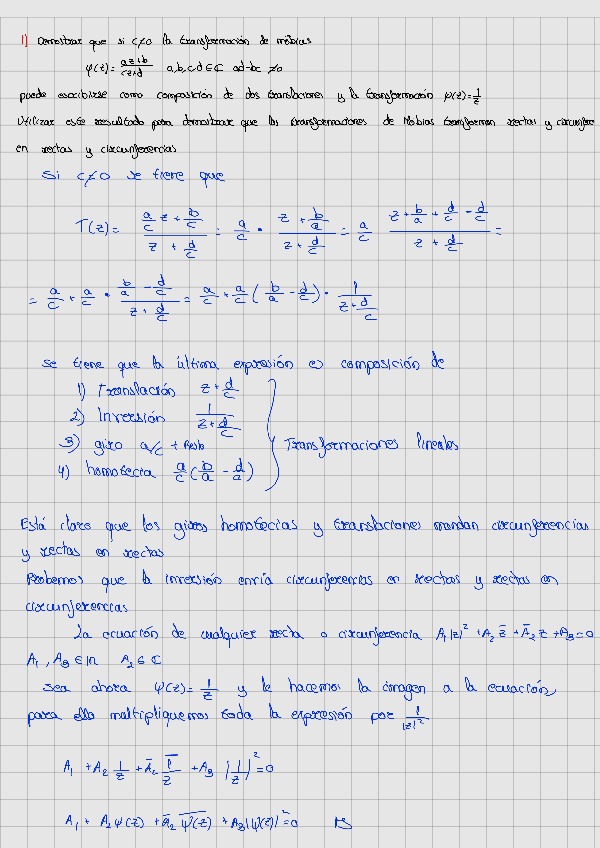 1) Demostrar que si c≠0 la transformación de möbius
φ(z) = (az+b)/(cz+d) a,b,c,d ∈ ℂ ad-bc ≠0
puede escribirse como composición de dos translaciones y la transformación ψ(z)=1/z
Utilizar este resultado para demostrar que las transformaciones de Mobius transforman rectas y circunfere
en rectas y circunferencias
Si c≠0 se tiene que
T(z) = (a/c z + b/c)/(z + d/c) = a/c · (z + b/a)/(z + d/c) = a/c (z + b/a + d/c - d/c)/(z + d/c) =
= a/c + a/c · (b/a - d/c)/(z + d/c) = a/c + a/c (b/a - d/c) · 1/(z + d/c)
se tiene que la última expresión es composición de
1) Translación z + d/c
2) Inversión 1/(z + d/c)
3) giro a/c +
4) homotecia a/c (b/a - d/a)
Transformaciones lineales
Está claro que los giros homotecias y translaciones mandan circunferencias
y rectas en rectas
Probemos que la inversión envía circunferencias en rectas y rectas en
circunferencias
La ecuación de cualquier recta o circunferencia A₁|z|² + A₂ z̄ + Ā₂ z + A₃ = 0
A₁, A₃ ∈ ℝ A₂ ∈ ℂ
Sea ahora ψ(z) = 1/z y le hacemos la imagen a la ecuación,
para ello multipliquemos toda la expresión por 1/|z|²
A₁ + A₂ 1/z + Ā₂ \overline{1/z} + A₃ |1/z|² = 0
A₁ + A₂ ψ(z) + Ā₂ \overline{ψ(z)} + A₃|ψ(z)|² = 0